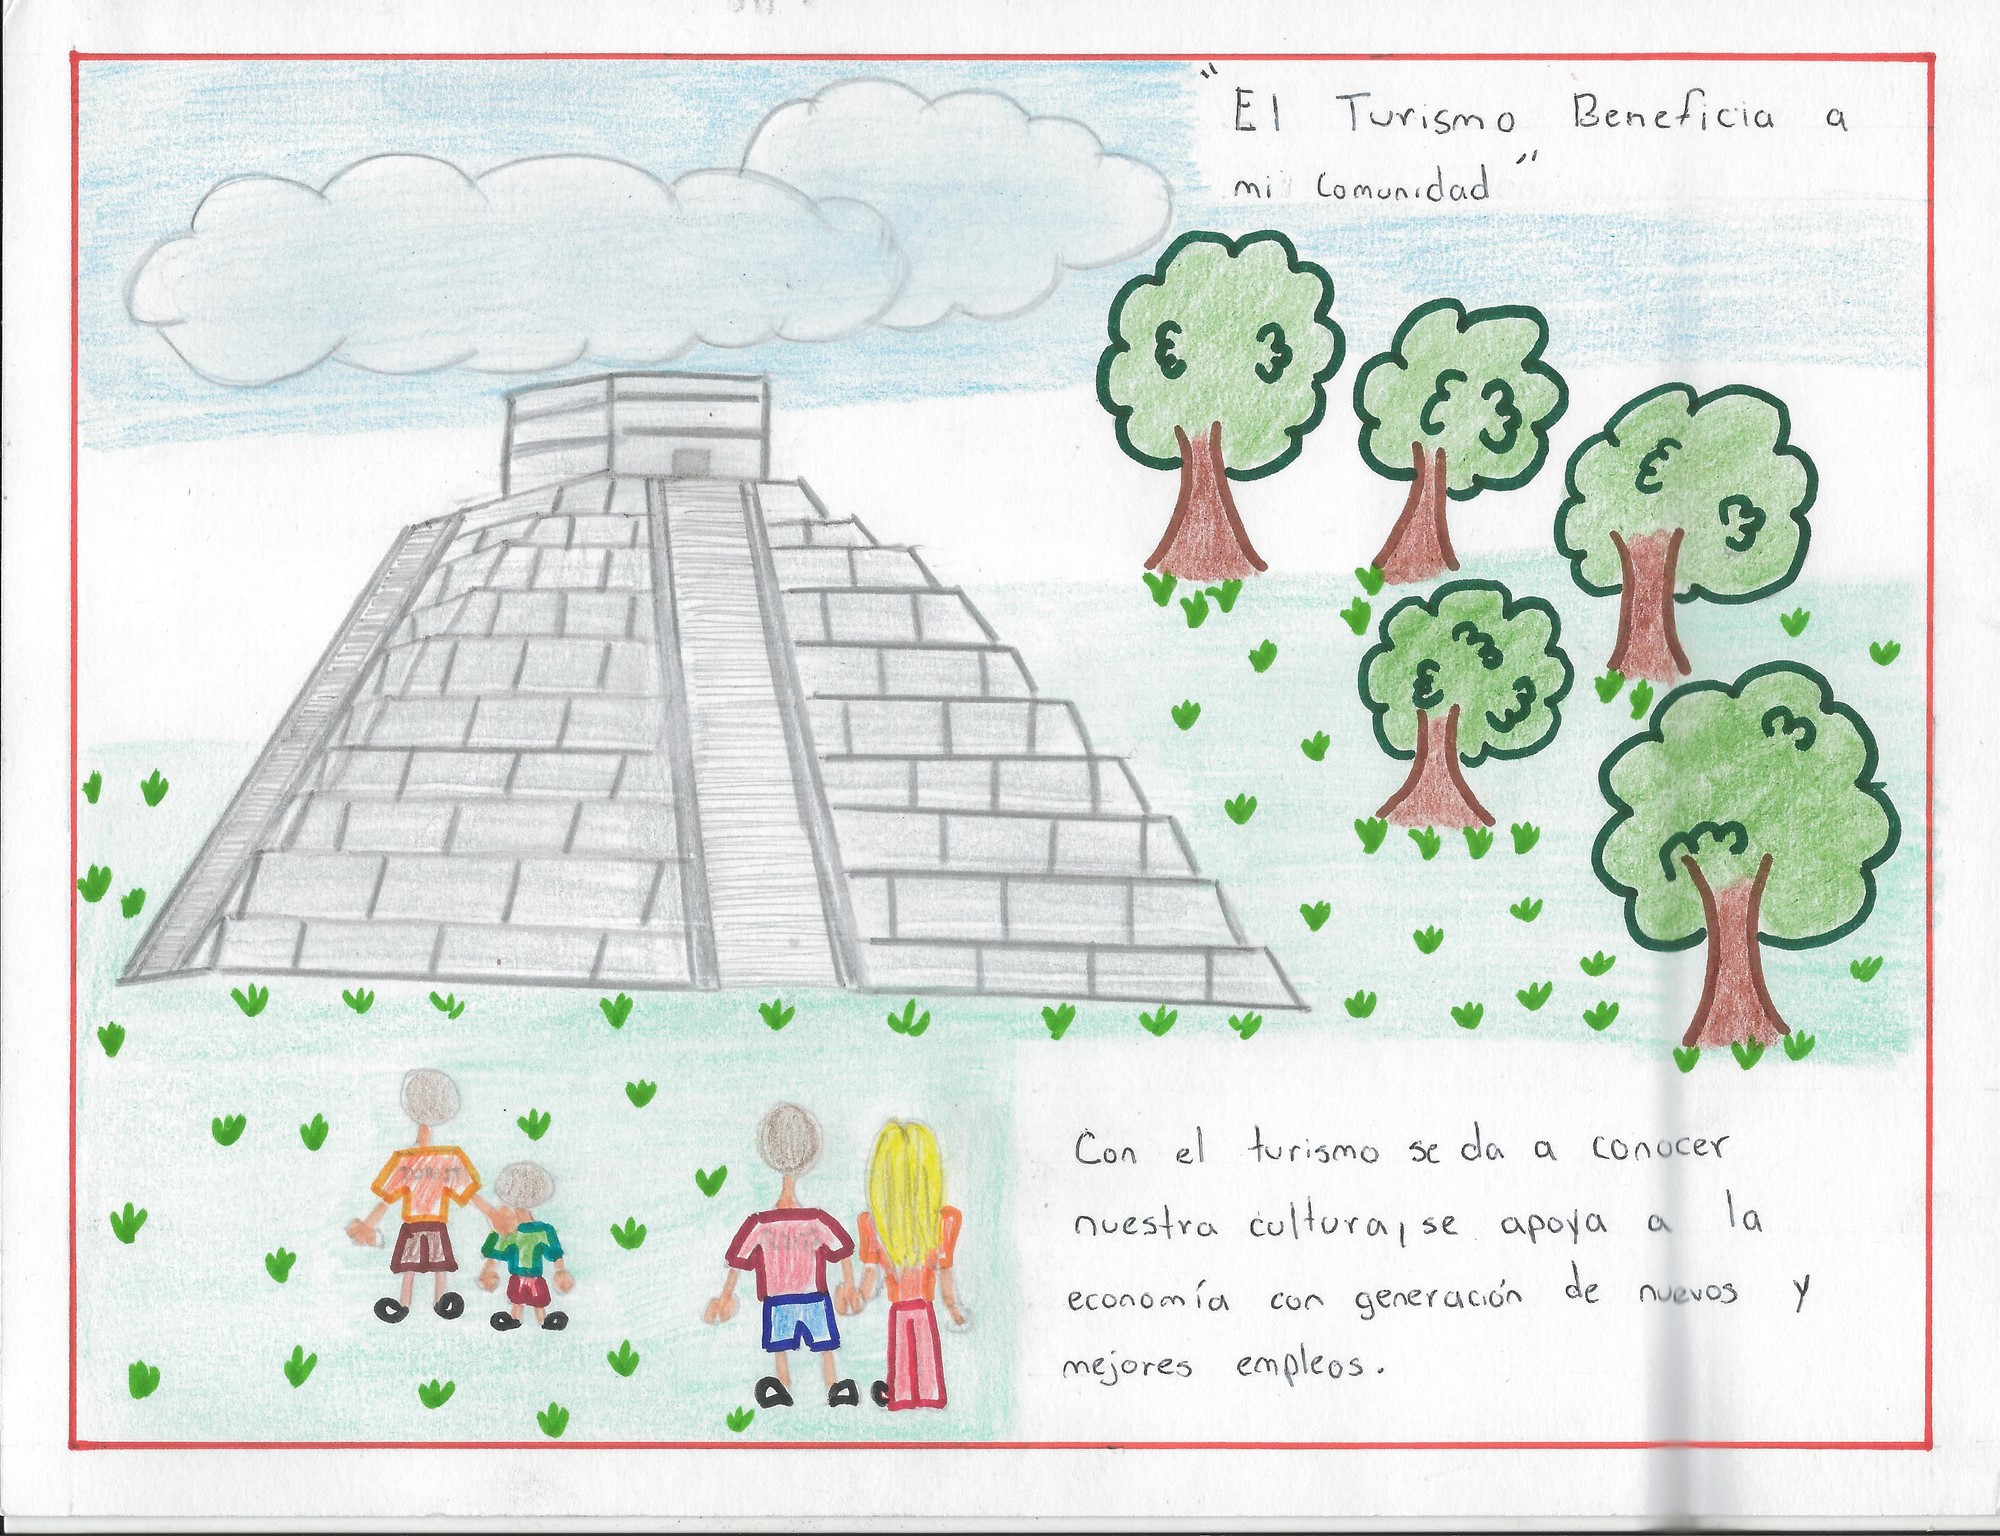 "El Turismo Beneficia a
mi comunidad"
Con el turismo se da a conocer
nuestra cultura, se apoya a la
economía con generación de nuevos y
mejores empleos.